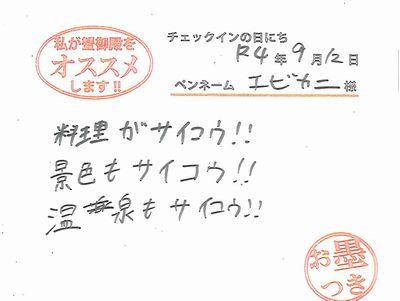 私が蟹御殿を
オススメ
します!!
チェックインの日にち
R4年9月12日
ペンネーム エビカニ 様
料理がサイコウ!!
景色もサイコウ!!
温泉もサイコウ!!
お墨
つき